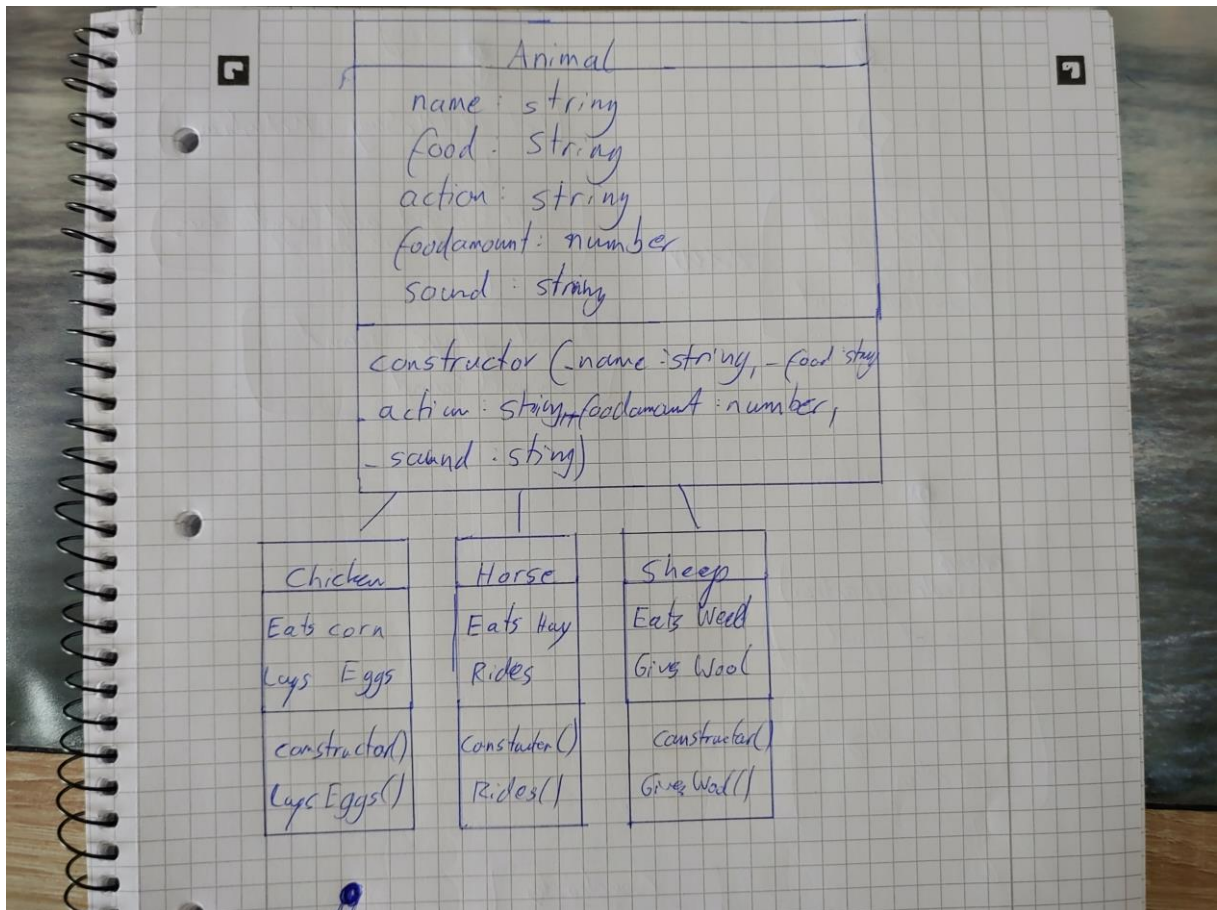 Animal
name : string
food : string
action : string
foodamount : number
sound : string
constructor (_name : string, _food : string
_action : string, _foodamount : number,
_sound : sting)
Chicken
Eats corn
Lays Eggs
constructor()
Lays Eggs()
Horse
Eats Hay
Rides
Constucter()
Rides()
Sheep
Eats Weed
Gives Wool
constructor()
Gives Wool()